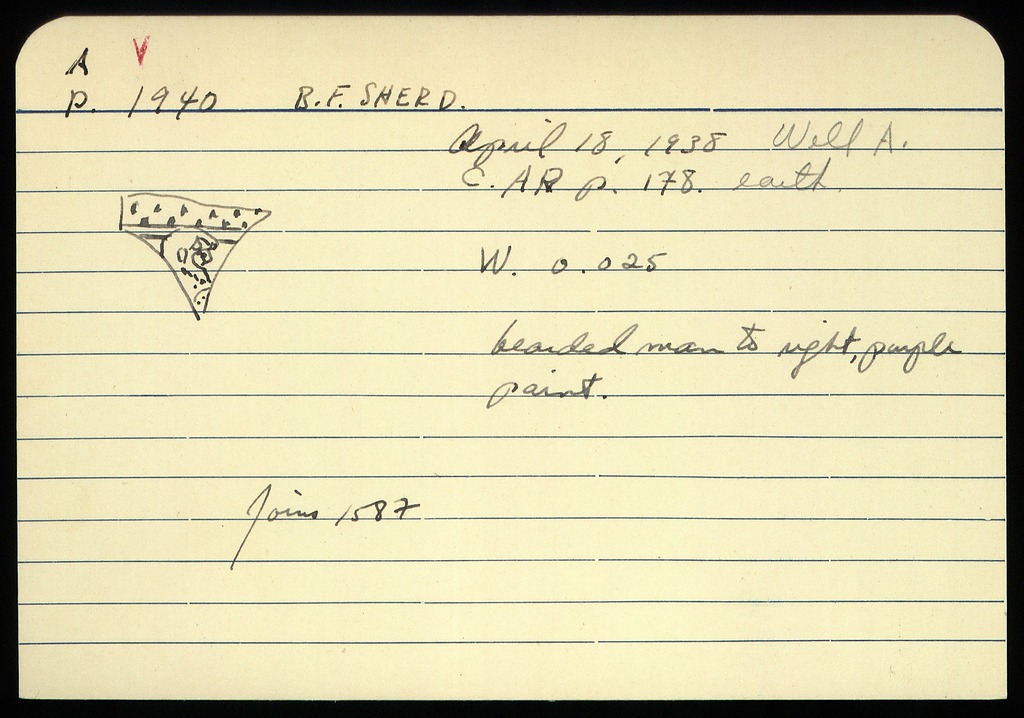 A V
P. 1940 B.F. SHERD.
April 18, 1938 Well A.
E. AR p. 178. earth.
W. 0.025
bearded man to right, purple
paint.
Joins 1587